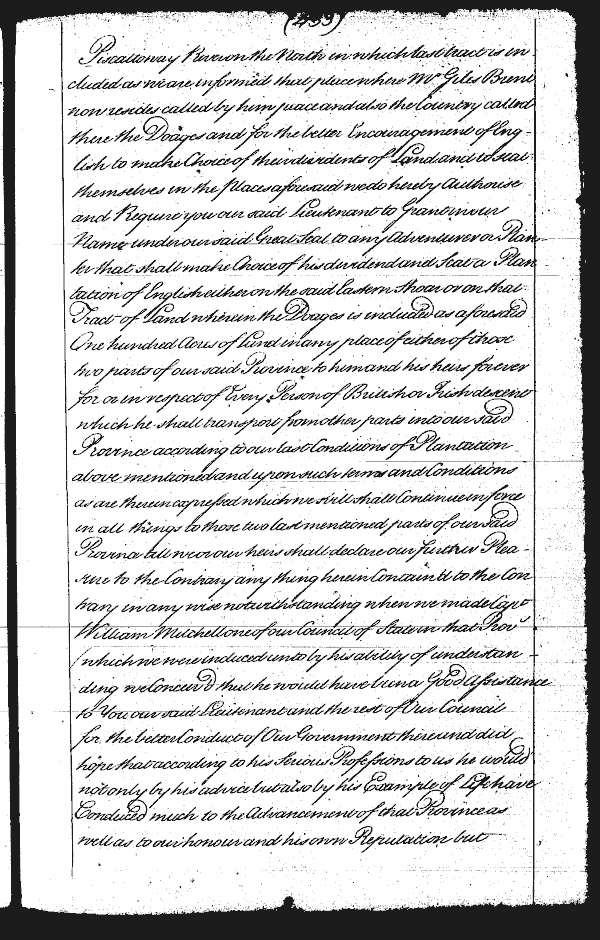 (433)
Piscattoway River on the North in which last tract is in-
cluded as we are informed that place where Mr Giles Brent
now resides called by him peace and also the Country called
there the Doages and for the better Encouragement of Eng-
lish to make Choice of their dividents of Land and to seat
themselves in the places aforesaid we do hereby Authorise
and Require you our said Lieutenant to Grant in our
Name under our said Great Seal to any Adventurer or Plan-
ter that shall make Choice of his dividend and Seat a Plan
tation of English either on the said Eastern Shoar or on that
Tract of Land wherein the Doages is included as aforesaid
One hundred Acres of Land in any place of either of those
two parts of our said Province to him and his heirs for ever
for or in respect of Every Person of British or Irish descent
which he shall transport from other parts into our said
Province according to our last Conditions of Plantation
above mentioned and upon such terms and Conditions
as are therein expressed which we will shall Continue in force
in all things to those two last mentioned parts of our said
Province till we or our heirs shall declare our further Plea-
sure to the Contrary any thing herein Contain'd to the Con
trary in any wise notwithstanding when we made Capt
William Mitchell one of our Council of State in that Prov
which we were induced unto by his ability of understan-
ding we Conceiv'd that he would have been a Good Assistance
to You our said Lieutenant and the rest of Our Council
for the better Conduct of Our Government there and did
hope that according to his Serious Professions to us he would
not only by his advice but also by his Example of Life have
Conduced much to the Advancement of that Province as
well as to our honour and his own Reputation but